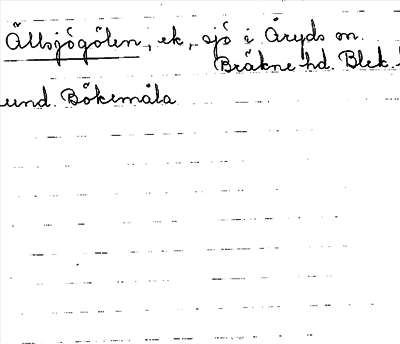 Ällsjögölen, ek., sjö i Åryds sn.
Bräkne hd. Blek.
und. Bökemåla